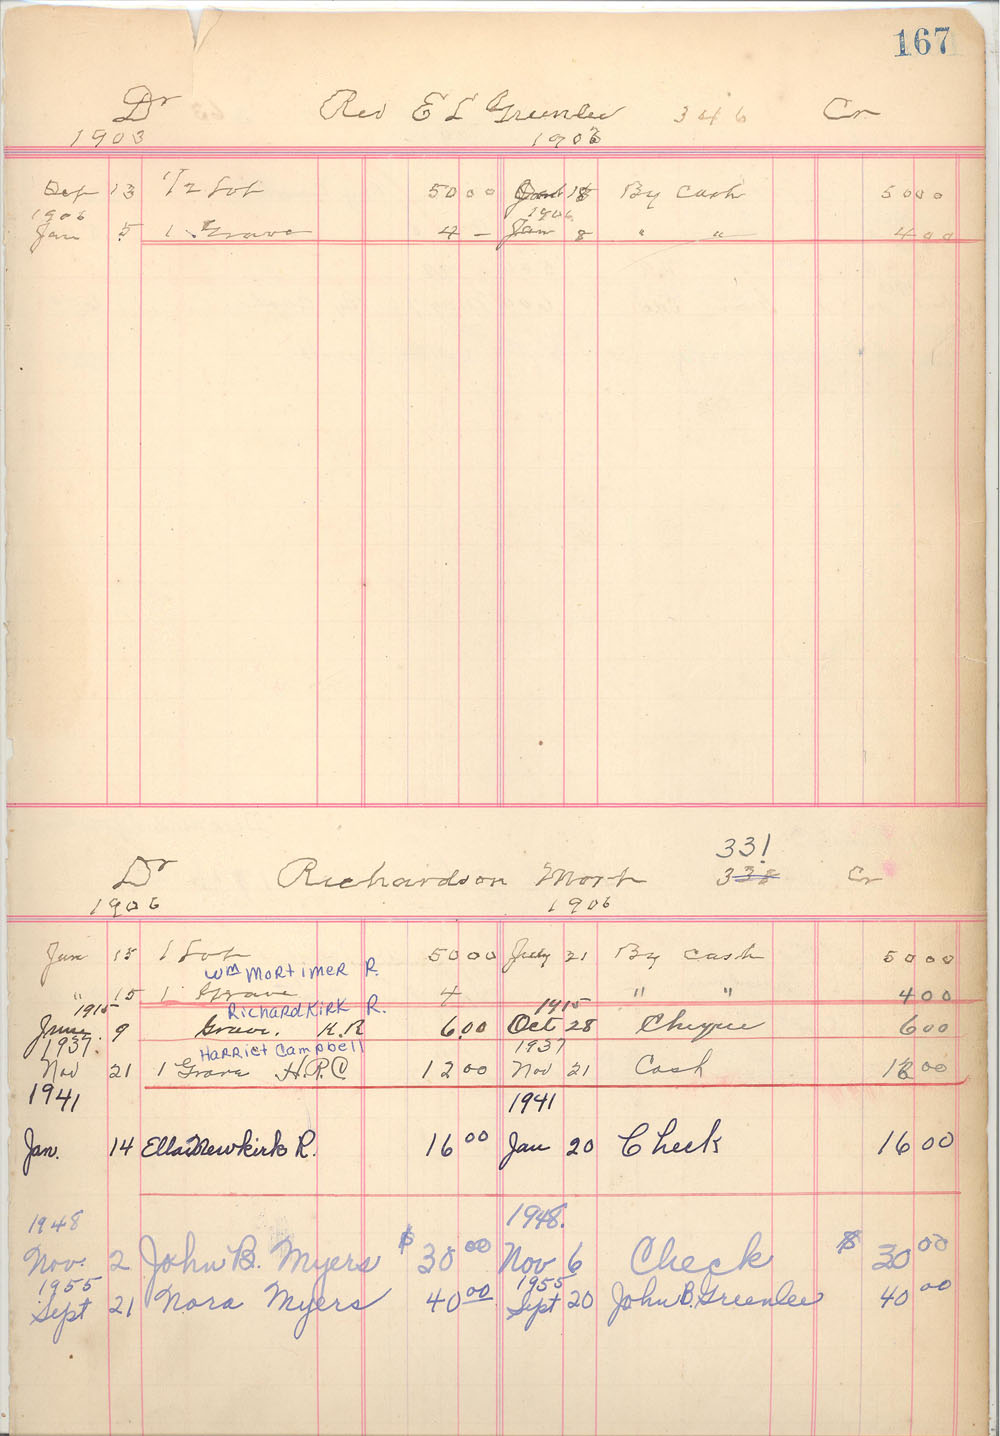 167
Dr Rev E L Greenlee 346 Cr
1903 1903
Sep 13 1/2 Lot 50 00 18 By Cash 50 00
1906 1906
Jan 5 1 Grave 4 - Jan 8 " " 4 00
331
Dr Richardson Mort 338 Cr
1906 1906
Jun 15 1 Lot 50 00 July 21 By Cash 50 00
Wm Mortimer R.
" 15 1 Grave 4 " " 4 00
1915 Richard Kirk R. 1915
June 9 Grave. K.R 6.00 Oct 28 Cheque 6 00
1937. Harriet Campbell 1937
Nov 21 1 Grave H.R.C 12 00 Nov 21 Cash 12 00
1941 1941
Jan. 14 Ella Newkirk R. 16 00 Jan 20 Check 16 00
1948 1948.
Nov. 2 John B. Myers $ 30 00 Nov 6 Check $ 30 00
1955 1955
Sept 21 Nora Myers 40 00 Sept 20 John B. Greenlee 40 00